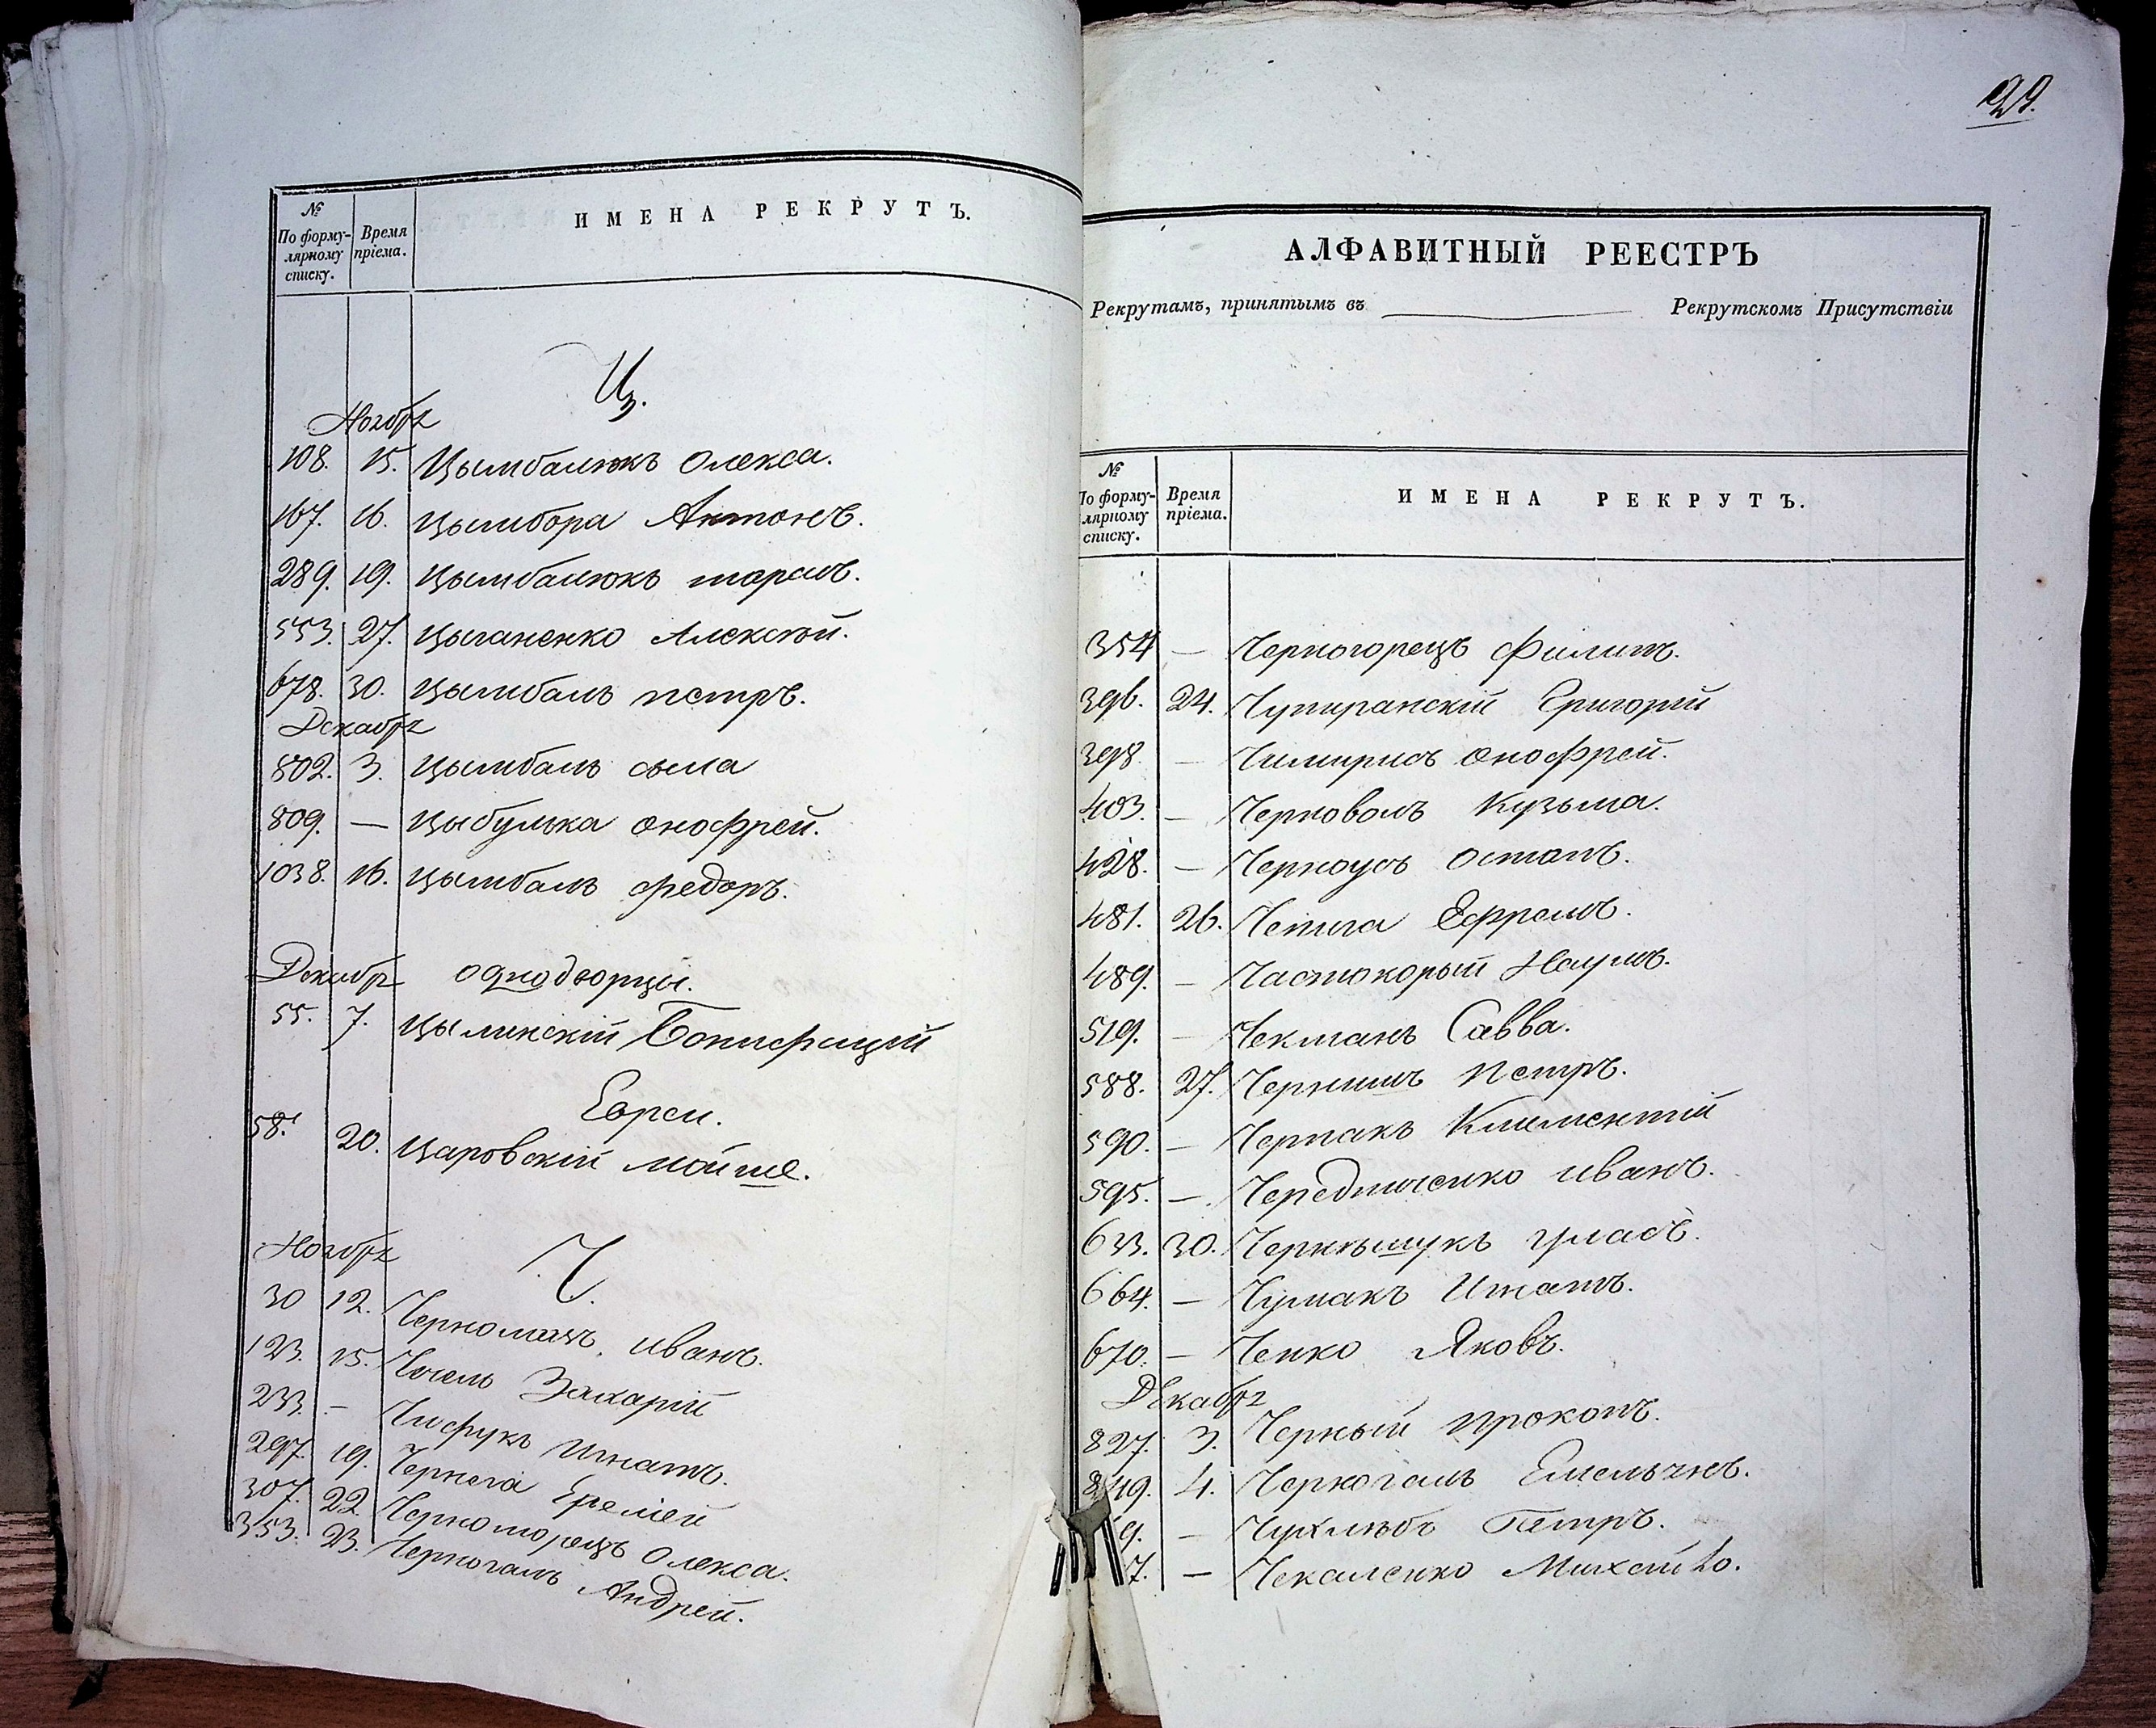 № По форму-лярному списку. Время пріема. ИМЕНА РЕКРУТЪ.
Ц.
Ноября
108. 15. Цымбалюкъ Олекса.
167. 16. Цымбора Антонъ.
289. 19. Цымбалюкъ тарасъ.
553. 27. Цыганенко Алексѣй.
678. 30. Цымбалъ петръ.
Декабря
802. 3. Цымбалъ сыма
809. — Цыбулька онофрей.
1038. 16. Цымбалъ федоръ.
Декабря однодворцы.
55. 7. Цылинскій Бонифацій
Евреи.
58. 20. Царовскій Мойше.
Ноября Ч.
30 12. Черномазъ иванъ.
123. 15. Чочель Захарій
233. — Чисфукъ Игнатъ.
297. 19. Чернега Еремей
307. 22. Черноморецъ Олекса.
353. 23. Черногалъ Андрей.
29.
АЛФАВИТНЫЙ РЕЕСТРЪ
Рекрутамъ, принятымъ въ Рекрутскомъ Присутствіи
№ По форму-лярному списку. Время пріема. ИМЕНА РЕКРУТЪ.
354 — Черногорецъ Филипъ.
396. 24. Чупиранскій Григорій
398 — Чимирисъ онофрей.
403. — Черноволъ Кузьма.
428. — Черноусъ Остапъ.
481. 26. Чепига Ефремъ.
489. — Частокорый Наумъ.
519. — Чекманъ Савва.
588. 27. Чернишъ Петръ.
590. — Черпакъ Климентій
595. — Чередниченко иванъ.
633. 30. Чернышукъ уласъ.
664. — Чумакъ Игнатъ.
670. — Ченко Яковъ.
Декабря
827. 3. Черный прокопъ.
849. 4. Черногалъ Емельянъ.
9. — Чухлѣбъ Петръ.
7. — Чекаленко Михайло.